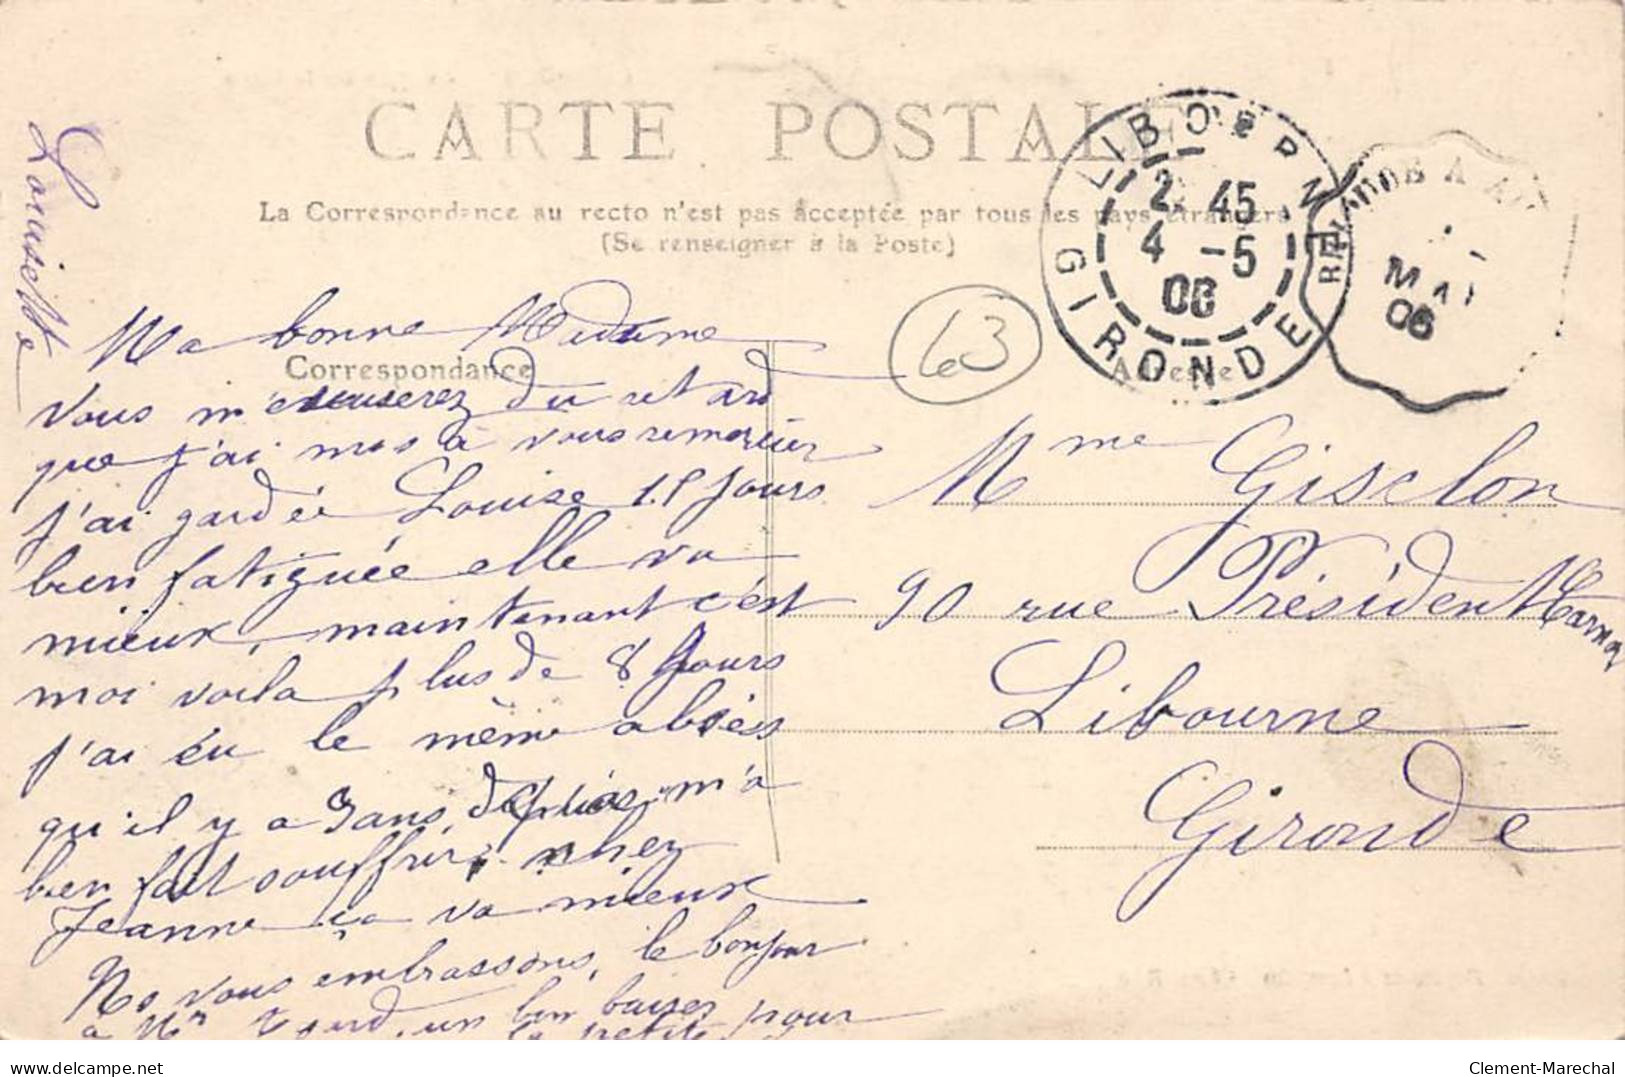 CARTE POSTALE
La Correspondance au recto n'est pas acceptée par tous les pays étrangers
(Se renseigner à la Poste)
LIBOURNE
2 45
4 -5
06
GIRONDE
MAI
06
63
Correspondance
Adresse
Ma bonne Madame
Vous m'excuserez du retard
que j'ai mis à vous remercier
j'ai gardée Louise 15 jours
bien fatiguée elle va
mieux, maintenant c'est
moi voila plus de 8 jours
j'ai éu le même abcés
qu'il y a 3 ans, m'a
bien fait souffrir, chez
Jeanne ça va mieux
Ns vous embrassons, le bonjour
à Mr un bon baiser pour
la petite
Louisette
Mme Gisclon
90 rue Président Carnot
Libourne
Gironde
delcampe.net
Clement-Marechal